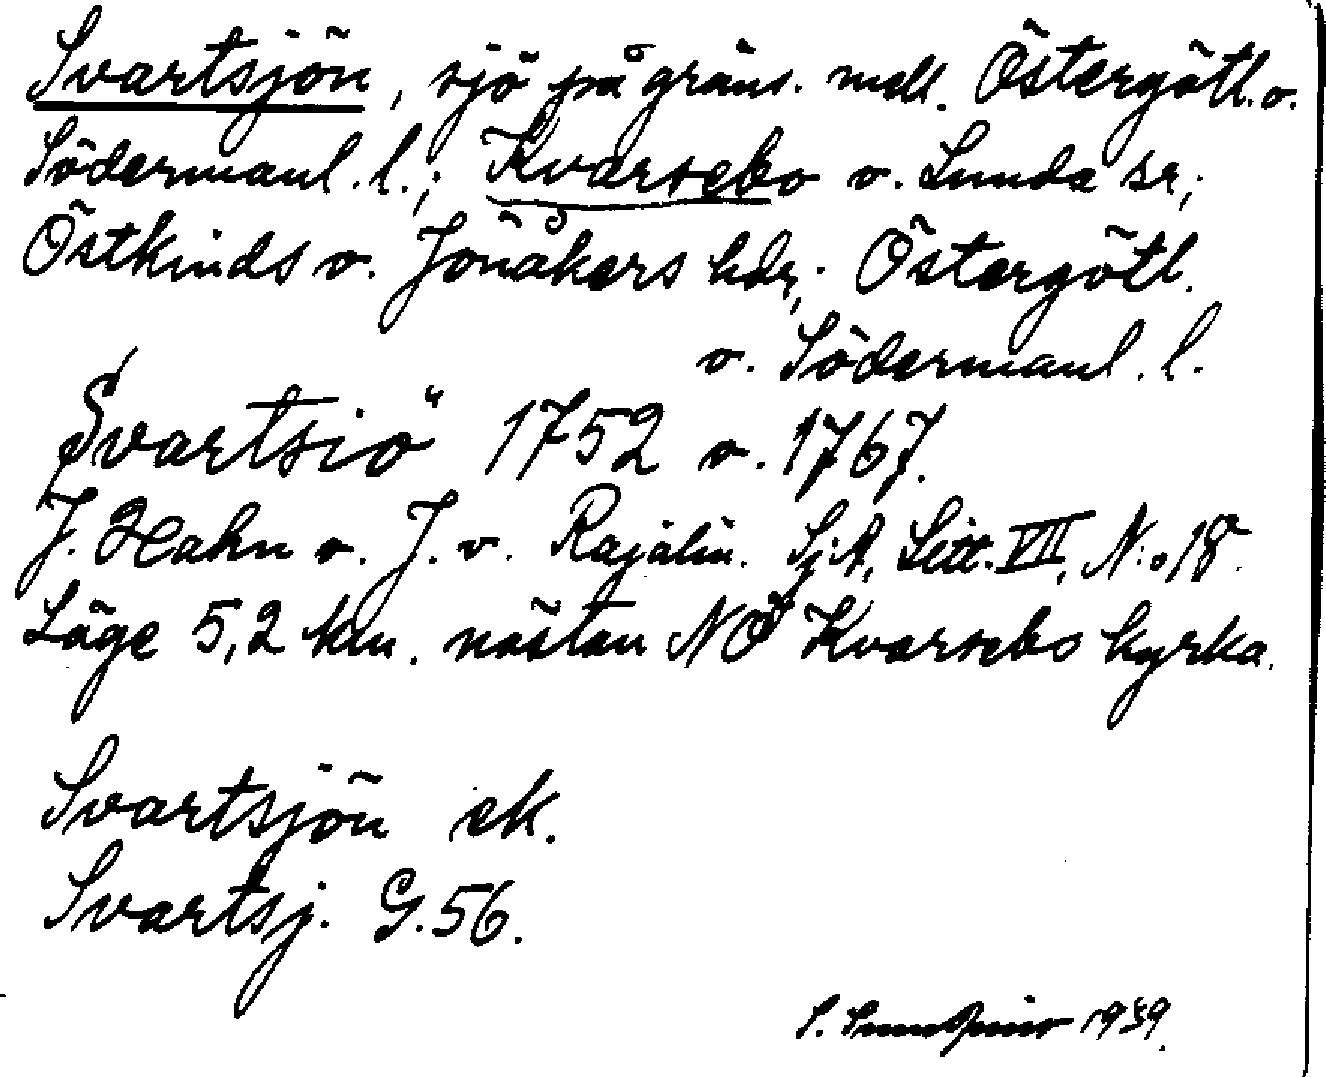 Svartsjön, sjö på gräns. mell. Östergötl. o.
Södermanl. l.; Kvarsebo o. Lunda sr;
Östkinds o. Jönåkers hdr; Östergötl.
o. Södermanl. l.
Svartsiö 1752 o. 1767.
J. Hahn o. J. v. Rajalin. Sj.A, Litt. VII, N:o 18.
Läge 5,2 km. nästan NO Kvarsebo kyrka.
Svartsjön ek.
Svartsj. G. 56.
S. 1939.